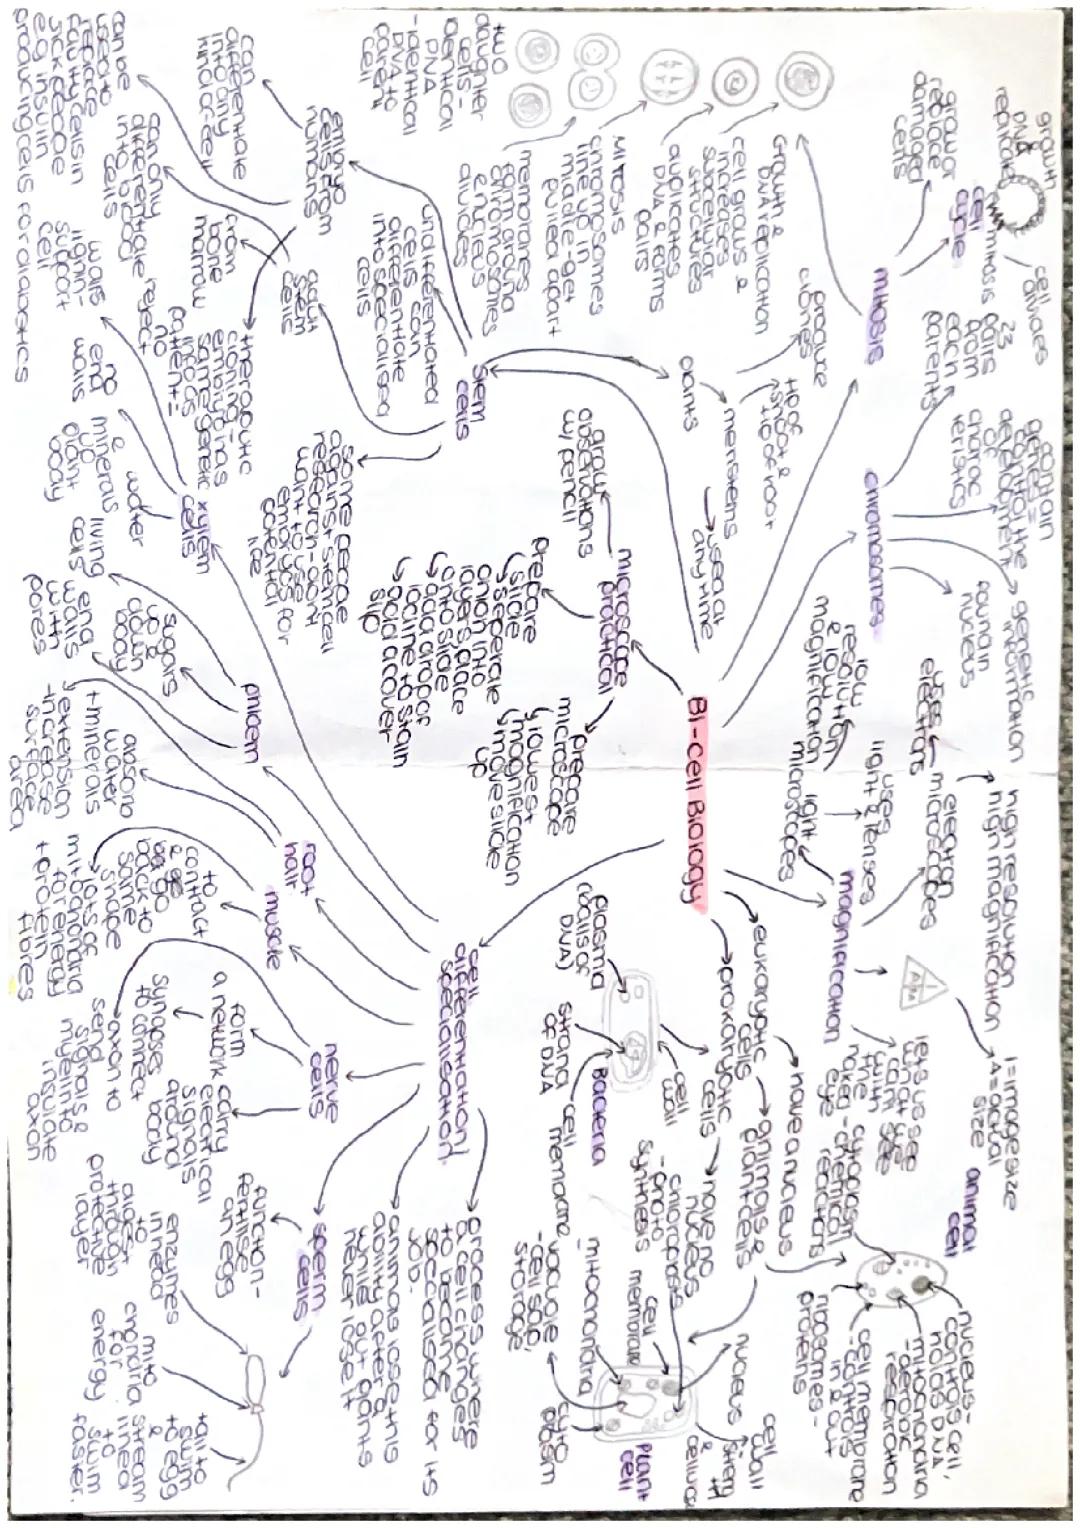 B1-cell Biology
mitosis
cell
cycle
growth
DNA
replicate
mitosis
cell
divides
grow or
replace
damaged
cells
Growth &
DNA replication
cell grows &
increases
subcellular
structures
duplicates
DNA & forms
pairs
MITOSIS
chromosomes
line up in
middle-get
pulled apart
membranes
form around
chromosomes
& nucleus
divides
two
daughter
cells-
identical
DNA
-identical
DNA to
parent
cell
chromosomes
23
pairs
from
each
parents
contain
genes=
control the
development
of
charac
teristics
genetic
information
found in
nucleus
magnification
light
microscopes
low
resolution
& low
magnification
uses
light & lenses
electron
microscopes
uses
electrons
high resolution
high magnification
I=image size
A=actual
size
lets us see
what we
can't see
with
the
naked
eye
stem
cells
plants
meristems
use at
any time
produce
clones
tip of
shoot &
tip of root
undifferentiated
cells can
differentiate
into specialised
cells
embryo
from
humans
can
differentiate
into any
kind of cell
adult
stem
cells
from
bone
marrow
can only
differentiate
into blood
cells
can be
used to
replace
faulty cells in
sick people
eg insulin
producing cells for diabetics
therapeutic
cloning=
embryo has
same genetic
info as
patient=
no
reject
some people
against stem cell
research-don't
want to use
embryos for
potential
life
microscope
practical
draw
observations
w/ pencil
prepare
slide
↳ seperate
onion into
layers place
onto slide
↳ add a drop of
iodine to stain
↳ add a cover
slip
prepare
microscope
↳ lowest
magnification
↳ move slide
up
eukaryotic
cells
have a nucleus
animals &
plant cells
prokaryotic
cells
have no
nucleus
Bacteria
cell
wall
cell
membrane
strand
of DNA
DNA)
animal
cell
nucleus-
controls cell,
holds DNA
-mitochondria
-aerobic
respiration
-cell membrane
-controls
in & out
ribosomes-
proteins
cytoplasm
-chemical
reactions
Plant
cell
chloroplasts
-photo
synthesis
cell
membrane
-mitochondria
vacuole
-cell sap,
storage
nucleus
cyto
plasm
cell
wall
cell
differentiation/
specialisation
process where
a cell changes
to become
specialised for its
job
animals lose this
ability after a
while but plants
never lose it
xylem
cells
walls
lignin-
support
cell
no
end
walls
water
&
minerals
up
plant
body
phloem
living
cells
end
walls
with
pores
sugars
up &
down
body
root
hair
absorb
water
+ minerals
↳ extension
-increase
surface
area
muscle
to
contract
& go
back to
same
shape
lots of
mitochondria
for energy
+ protein
fibres
nerve
cells
form
a network
synapses
to connect
axon to
send
signals &
myelin to
insulate
axon
carry
electrical
signals
around
body
sperm
cells
function-
fertilise
an egg
enzymes
in head
to
digest
through
protective
layer
mito
chondria
for
energy
tail to
swim
to egg
&
stream
lined
to
swim
faster.